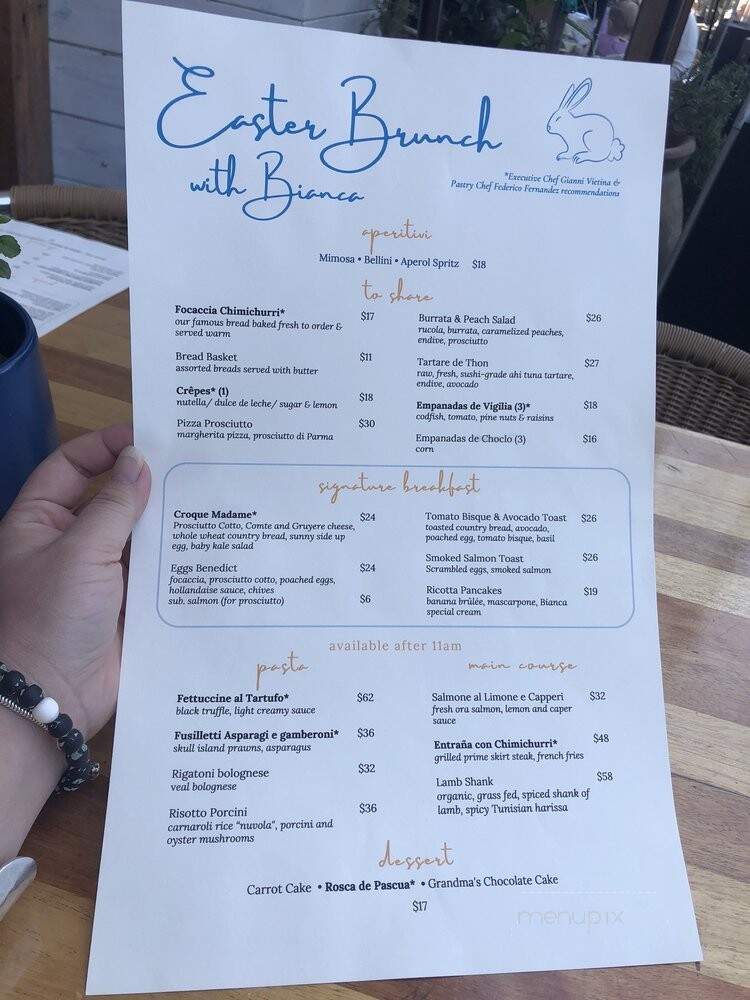 Easter Brunch
with Bianca
*Executive Chef Gianni Vietina &
Pastry Chef Federico Fernandez recommendations
aperitivi
Mimosa • Bellini • Aperol Spritz $18
to share
Focaccia Chimichurri* $17
our famous bread baked fresh to order &
served warm
Bread Basket $11
assorted breads served with butter
Crêpes* (1) $18
nutella/ dulce de leche/ sugar & lemon
Pizza Prosciutto $30
margherita pizza, prosciutto di Parma
Burrata & Peach Salad $26
rucola, burrata, caramelized peaches,
endive, prosciutto
Tartare de Thon $27
raw, fresh, sushi-grade ahi tuna tartare,
endive, avocado
Empanadas de Vigilia (3)* $18
codfish, tomato, pine nuts & raisins
Empanadas de Choclo (3) $16
corn
signature breakfast
Croque Madame* $24
Prosciutto Cotto, Comte and Gruyere cheese,
whole wheat country bread, sunny side up
egg, baby kale salad
Eggs Benedict $24
focaccia, prosciutto cotto, poached eggs,
hollandaise sauce, chives
sub. salmon (for prosciutto) $6
Tomato Bisque & Avocado Toast $26
toasted country bread, avocado,
poached egg, tomato bisque, basil
Smoked Salmon Toast $26
Scrambled eggs, smoked salmon
Ricotta Pancakes $19
banana brûlée, mascarpone, Bianca
special cream
available after 11am
pasta
Fettuccine al Tartufo* $62
black truffle, light creamy sauce
Fusilletti Asparagi e gamberoni* $36
skull island prawns, asparagus
Rigatoni bolognese $32
veal bolognese
Risotto Porcini $36
carnaroli rice "nuvola", porcini and
oyster mushrooms
main course
Salmone al Limone e Capperi $32
fresh ora salmon, lemon and caper
sauce
Entraña con Chimichurri* $48
grilled prime skirt steak, french fries
Lamb Shank $58
organic, grass fed, spiced shank of
lamb, spicy Tunisian harissa
dessert
Carrot Cake • Rosca de Pascua* • Grandma's Chocolate Cake
$17
menupix